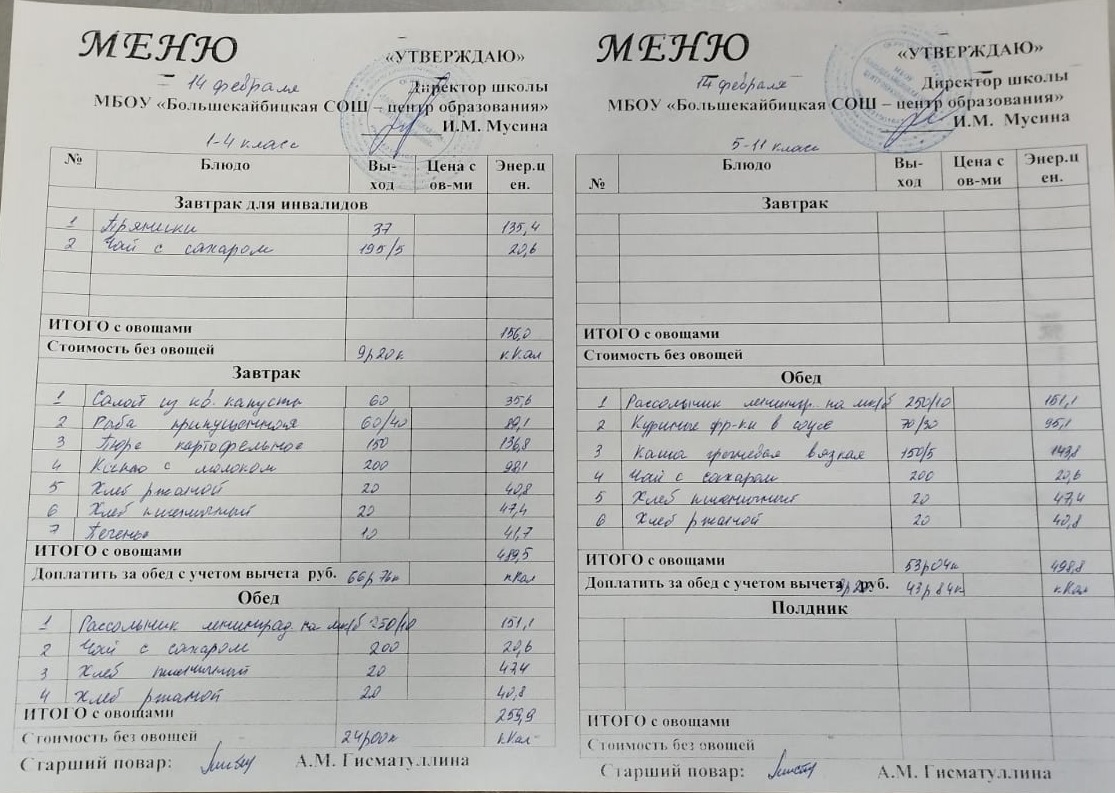 МЕНЮ
«УТВЕРЖДАЮ»
14 февраля
Директор школы
МБОУ «Большекайбицкая СОШ – центр образования»
И.М. Мусина
1-4 класс
№ Блюдо Вы-ход Цена с ов-ми Энер.ц ен.
Завтрак для инвалидов
1 Пряники 37 135,4
2 Чай с сахаром 195/5 20,6
ИТОГО с овощами 156,0
Стоимость без овощей 9р20к к.Кал
Завтрак
1 Салат из кв. капусты 60 35,6
2 Рыба припущенная 60/40 89,1
3 Пюре картофельное 150 136,8
4 Какао с молоком 200 98,1
5 Хлеб ржаной 20 40,8
6 Хлеб пшеничный 20 47,4
7 Печенье 10 41,7
ИТОГО с овощами 489,5
Доплатить за обед с учетом вычета руб. 66р76к кКал
Обед
1 Рассольник ленинград. на мк/б 250/10 151,1
2 Чай с сахаром 200 20,6
3 Хлеб пшеничный 20 47,4
4 Хлеб ржаной 20 40,8
ИТОГО с овощами 259,9
Стоимость без овощей 24р00к к.Кал
Старший повар: А.М. Гисматуллина
МЕНЮ
«УТВЕРЖДАЮ»
14 февраля
Директор школы
МБОУ «Большекайбицкая СОШ – центр образования»
И.М. Мусина
5-11 класс
№ Блюдо Вы-ход Цена с ов-ми Энер.ц ен.
Завтрак
ИТОГО с овощами
Стоимость без овощей
Обед
1 Рассольник ленингр. на мк/б 250/10 151,1
2 Куриные фр-ки в соусе 70/30 95,1
3 Каша гречневая вязкая 150/5 143,8
4 Чай с сахаром 200 20,6
5 Хлеб пшеничный 20 47,4
6 Хлеб ржаной 20 40,8
ИТОГО с овощами 53р04к 498,8
Доплатить за обед с учетом вычета 9р20 руб. 43р84к кКал
Полдник
ИТОГО с овощами
Стоимость без овощей
Старший повар: А.М. Гисматуллина